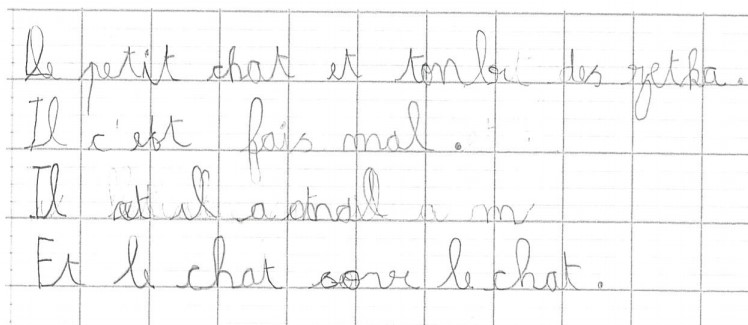 Le petit chat et tonbé des getha.
Il c'est fais mal.
Il et il a
Et le chat sove le chat.